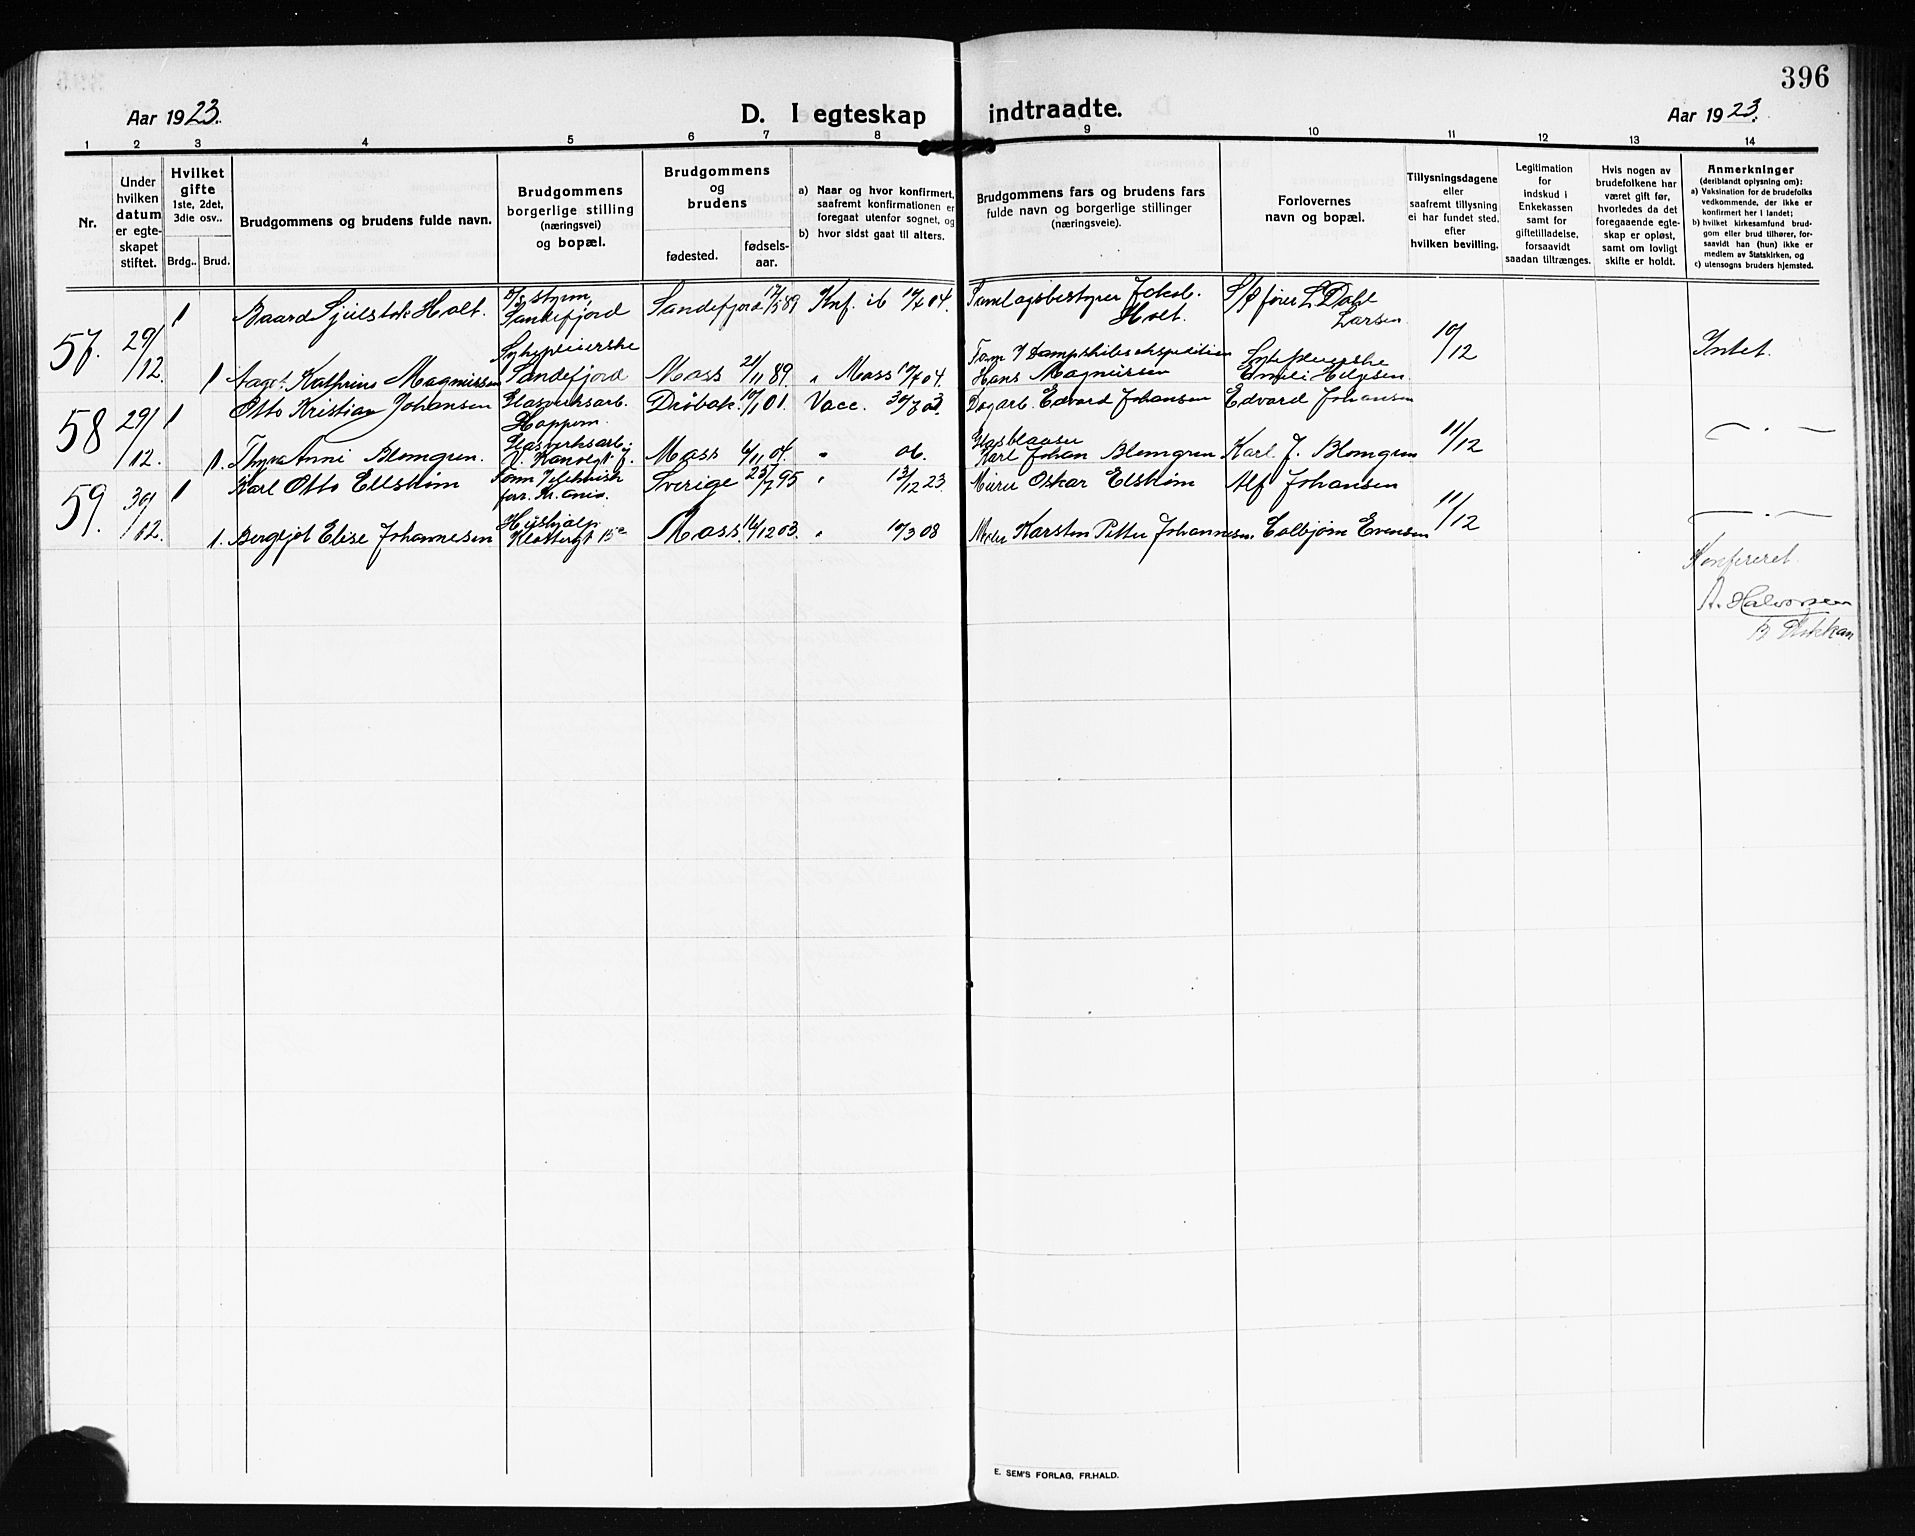 396
Aar 1923.
D. I egteskap indtraadte.
Aar 1923.
1 2 3 4 5 6 7 8 9 10 11 12 13 14
Nr.
Under hvilken datum er egte-skapet stiftet.
Hvilket gifte 1ste, 2det, 3die osv..
Brdg.. Brud.
Brudgommens og brudens fulde navn.
Brudgommens borgerlige stilling (næringsvei) og bopæl.
Brudgommens og brudens
fødested. fødsels-aar.
a) Naar og hvor konfirmert, saafremt konfirmationen er foregaat utenfor sognet, og
b) hvor sidst gaat til alters.
Brudgommens fars og brudens fars fulde navn og borgerlige stillinger (næringsveie).
Forlovernes navn og bopæl.
Tillysningsdagene eller saafremt tillysning ei har fundet sted, efter hvilken bevilling.
Legitimation for indskud i Enkekassen samt for giftetilladelse, forsaavidt saadan tiltrænges.
Hvis nogen av brudefolkene har været gift før, hvorledes da det foregaaende egte-skap er opløst, samt om lovligt skifte er holdt.
Anmerkninger (deriblandt oplysning om):
a) Vaksination for de brudefolks vedkommende, der ikke er konfirmert her i landet;
b) hvilket kirkesamfund brud-gom eller brud tilhører, for-saavidt han (hun) ikke er medlem av Statskirken, og
c) utensogns bruders hjemsted.
57. 29/12. 1 Baard Holt. styrm. Sandefjord Sandefjord 17/5 89 Knf. ib 17/4 04. Jakob Holt. S/p fører L. Dahl Larsen 10/12 Intet.
1 Aagot Kathrine Magnussen Sykepleierske Sandefjord Moss 21/11 89. " Moss 04. Form. i Dampskibsekspedition Hans Magnussen Sykepleierske Emili Helgesen.
58 29/12. 1 Otto Kristian Johansen Glasverksarb. Hoppern. Drøbak. 01. Vacc. 30/8 03 Dagarb. Edvard Johansen Edvard Johansen 11/12 — " —
1. Thyra Anni Blomgren. Glasverksarb. Moss 6/11 04. " 06. Glasblaaser Karl Johan Blomgren Karl J. Blomgren
59. 30/12. 1 Karl Otto Ellstrøm Sverige 23/7 95 " 13/12 23 Murer Oskar Elstrøm Alf Johansen 11/12 — " —
1. Bergljot Elise Johannesen Hushjælp. Klostergt 15a Moss. 16/12 03. " 10/3 08 Karsten Petter Johannesen. Colbjørn Evensen
Konfereret.
A. Halvorsen
E. SEM'S FORLAG, FR.HALD.